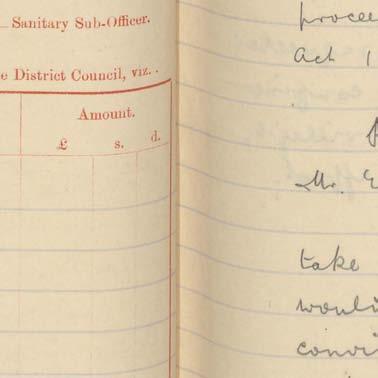 Sanitary Sub-Officer.
e District Council, viz. .
Amount.
£ s. d.
procee
Act 1
Mr. E
take
would
convi